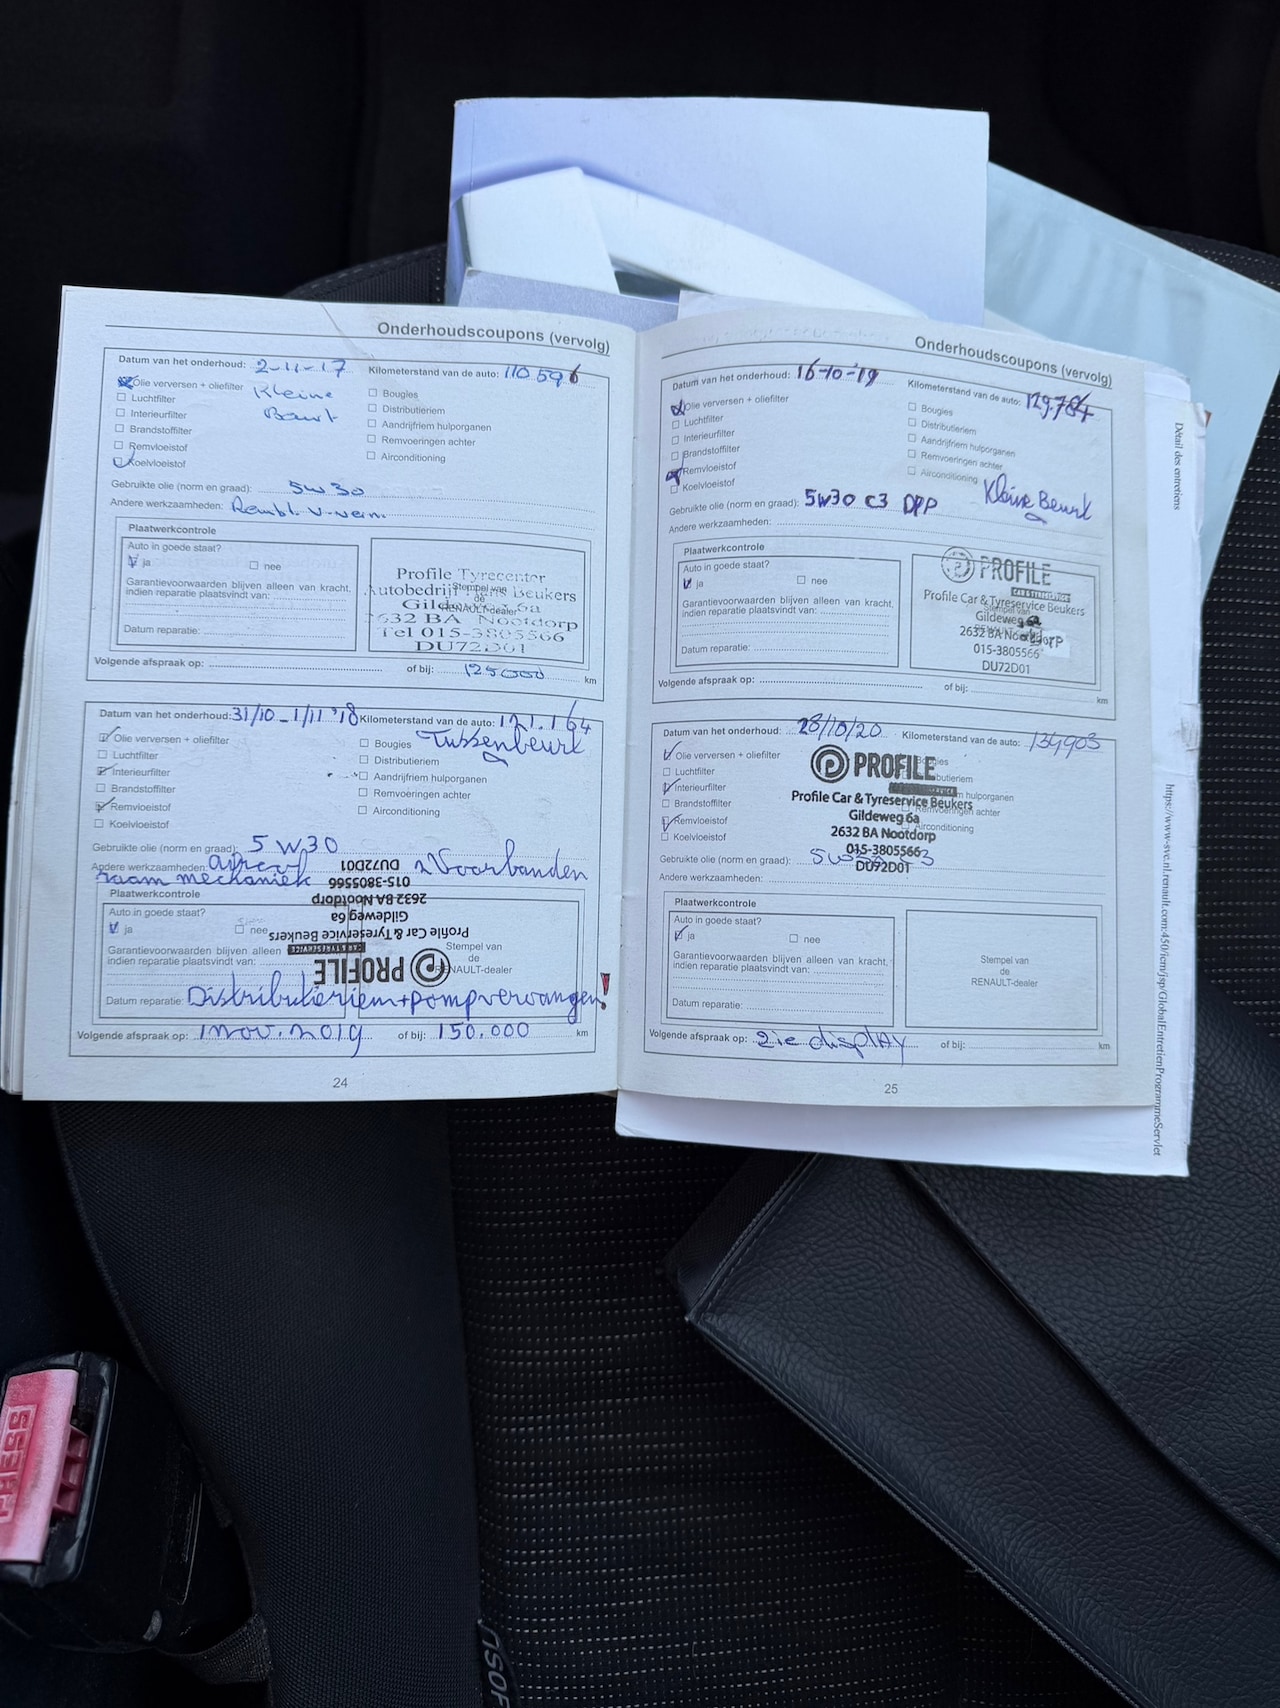 Onderhoudscoupons (vervolg)
Datum van het onderhoud: 2-11-17 Kilometerstand van de auto: 110 596
Olie verversen + oliefilter Kleine
Luchtfilter Beurt
Interieurfilter
Brandstoffilter
Remvloeistof
Koelvloeistof
Bougies
Distributieriem
Aandrijfriem hulporganen
Remvoeringen achter
Airconditioning
Gebruikte olie (norm en graad): 5w30
Andere werkzaamheden: Rembl. V. vern.
Plaatwerkcontrole
Auto in goede staat?
ja nee
Garantievoorwaarden blijven alleen van kracht,
indien reparatie plaatsvindt van:
Datum reparatie:
Stempel van
de
RENAULT-dealer
Profile Tyrecenter
Autobedrijf Beukers
Gildeweg 6a
2632 BA Nootdorp
Tel 015-3805566
DU72D01
Volgende afspraak op: of bij: 125000 km
Datum van het onderhoud: 31/10 - 1/11 '18 Kilometerstand van de auto: 121.164
Olie verversen + oliefilter
Luchtfilter
Interieurfilter
Brandstoffilter
Remvloeistof
Koelvloeistof
Bougies Tussenbeurt
Distributieriem
Aandrijfriem hulporganen
Remvoeringen achter
Airconditioning
Gebruikte olie (norm en graad): 5W30
Andere werkzaamheden: airco 2 Voorbanden
raam mechaniek
Plaatwerkcontrole
Auto in goede staat?
ja nee
Garantievoorwaarden blijven alleen
indien reparatie plaatsvindt van:
Stempel van
de
RENAULT-dealer
PROFILE
CAR & TYRESERVICE
Profile Car & Tyreservice Beukers
Gildeweg 6a
2632 BA Nootdorp
015-3805566
DU72D01
Datum reparatie: Distributieriem + pomp vervangen!
Volgende afspraak op: 1 nov. 2019 of bij: 150.000 km
24
Onderhoudscoupons (vervolg)
Datum van het onderhoud: 16-10-'19 Kilometerstand van de auto: 129.784
Olie verversen + oliefilter
Luchtfilter
Interieurfilter
Brandstoffilter
Remvloeistof
Koelvloeistof
Bougies
Distributieriem
Aandrijfriem hulporganen
Remvoeringen achter
Airconditioning
Kleine Beurt
Gebruikte olie (norm en graad): 5W30 C3 DPP
Andere werkzaamheden:
Plaatwerkcontrole
Auto in goede staat?
ja nee
Garantievoorwaarden blijven alleen van kracht,
indien reparatie plaatsvindt van:
Datum reparatie:
PROFILE
CAR & TYRESERVICE
Profile Car & Tyreservice Beukers
Gildeweg 6a
2632 BA Nootdorp
015-3805566
DU72D01
Volgende afspraak op: of bij: km
Datum van het onderhoud: 28/10/20 Kilometerstand van de auto: 134903
Olie verversen + oliefilter
Luchtfilter
Interieurfilter
Brandstoffilter
Remvloeistof
Koelvloeistof
Bougies
hulporganen
Remvoeringen achter
Airconditioning
PROFILE
Profile Car & Tyreservice Beukers
Gildeweg 6a
2632 BA Nootdorp
015-3805566
DU72D01
Gebruikte olie (norm en graad):
Andere werkzaamheden:
Plaatwerkcontrole
Auto in goede staat?
ja nee
Garantievoorwaarden blijven alleen van kracht,
indien reparatie plaatsvindt van:
Datum reparatie:
Stempel van
de
RENAULT-dealer
Volgende afspraak op: zie display of bij: km
25
Détail des entretiens
https://www-svc.nl.renault.com:450/iem/jsp/GlobalEntretienProgrammeServlet
PRESS